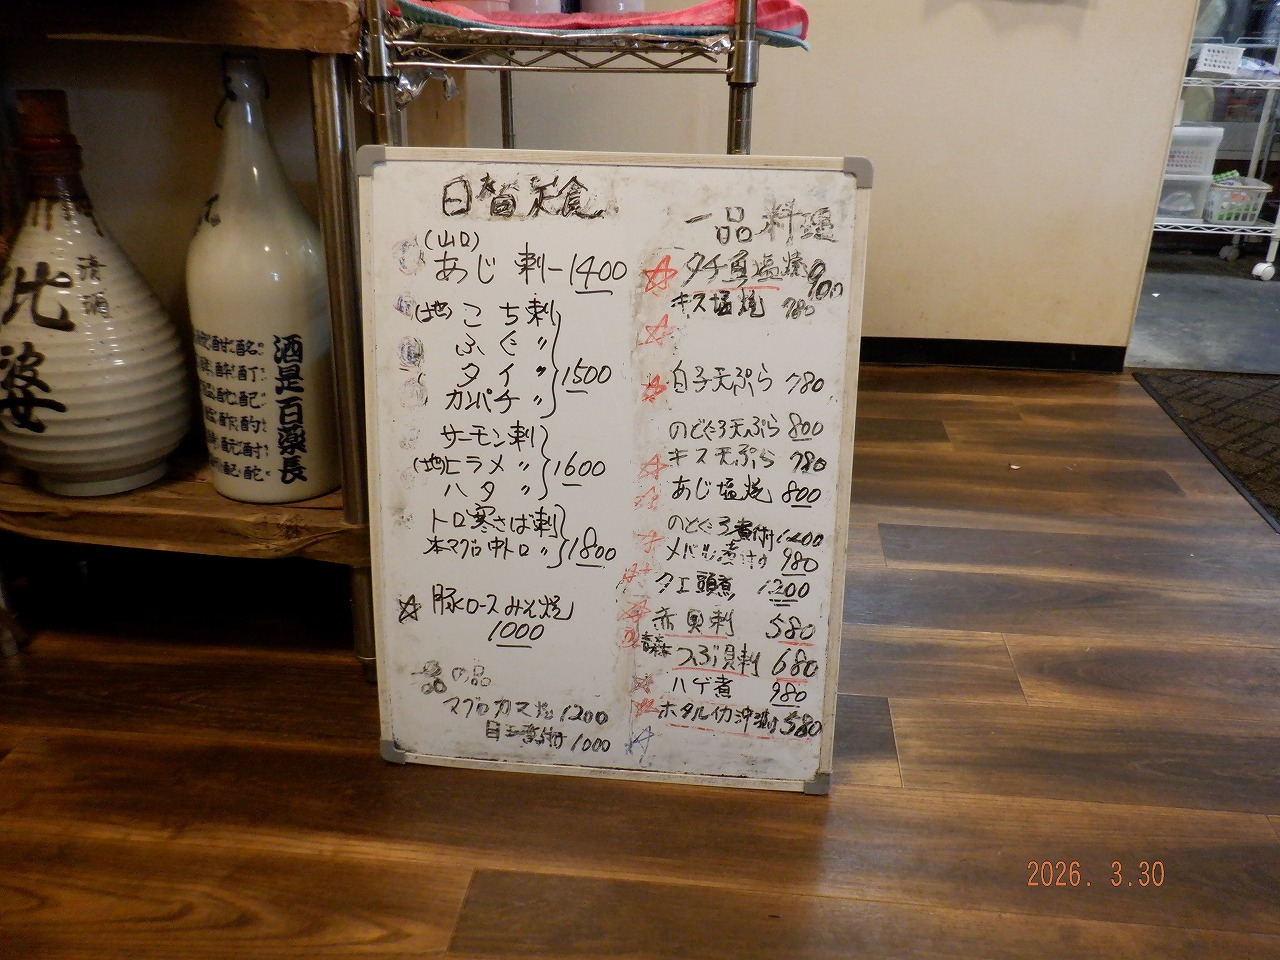 日替定食
(山口)
あじ刺-1400
(地)こち刺
ふぐ〃
タイ〃
1500
カンパチ〃
サーモン刺
(地)ヒラメ〃
1600
ハタ〃
トロ寒さば刺
本マグロ中トロ〃
1800
☆豚ロースみそ焼
1000
の品
マグロカマ焼1200
目玉煮付1000
一品料理
☆タチ魚塩焼900
キス塩焼780
☆
☆白子天ぷら780
のどぐろ天ぷら800
☆キス天ぷら780
☆あじ塩焼800
のどぐろ煮付1200
メバル煮付980
クエ頭煮1200
☆赤貝刺580
青森
つぶ貝刺680
☆ハゲ煮980
ホタルイカ沖漬580
☆
清酒
酒是百薬長
2026. 3.30